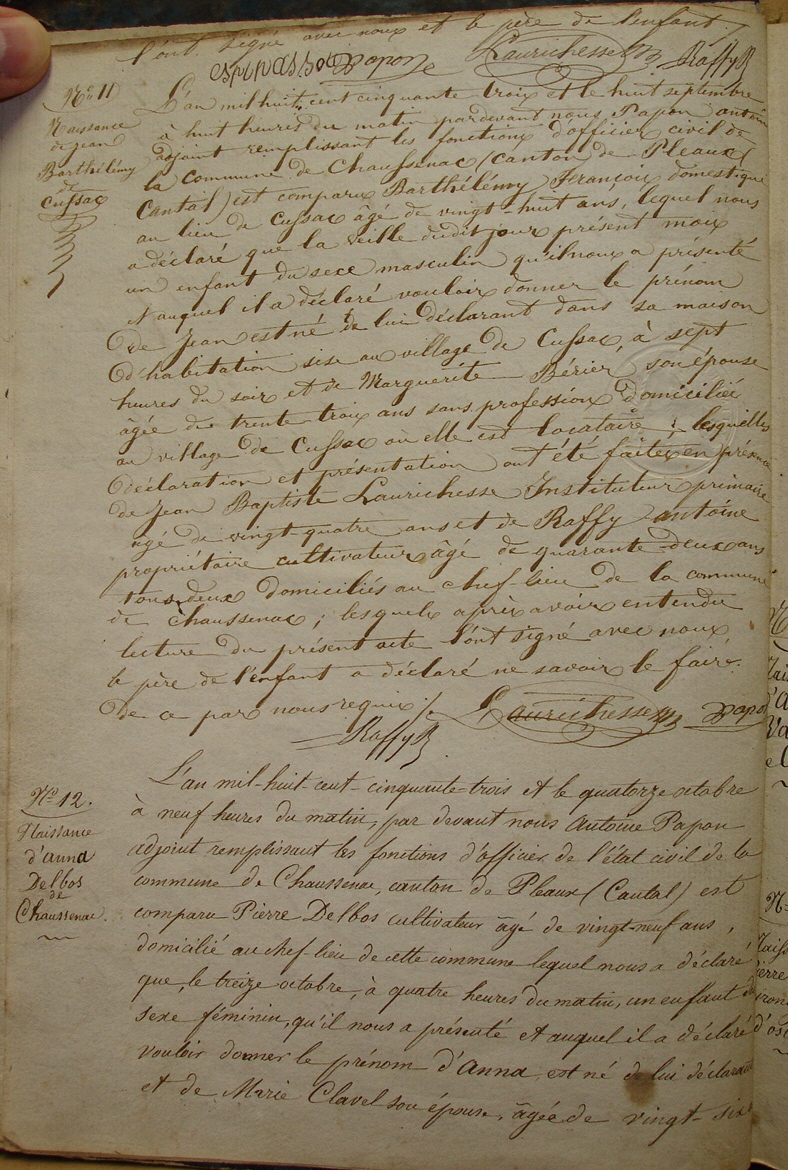 l'ont signé avec nous et le père de l'enfant.
Papon Laurichesse Raffy
N° 11
Naissance
de jean
Barthélémy
de
Cussac
L'an mil huit cent cinquante trois et le huit septembre
à huit heures du matin pardevant nous Papon antoine
adjoint remplissant les fonctions d'officier civil de
la commune de Chaussenac (canton de Pleaux
Cantal) est comparu Barthélémy François domestique
au lieu de Cussac âgé de vingt-huit ans, lequel nous
a déclaré que la veille dudit jour présent mois
un enfant du sexe masculin qu'il nous a présenté
et auquel il a déclaré vouloir donner le prénom
de Jean est né de lui déclarant dans sa maison
d'habitation sise au village de Cussac, à sept
heures du soir et de Marguerite Bérier son épouse
âgée de trente-trois ans sans profession domiciliée
au village de Cussac où elle est locataire ; lesquelles
déclaration et présentation ont été faites en présence
de Jean Baptiste Laurichesse Instituteur primaire
agé de vingt quatre ans et de Raffy antoine
propriétaire cultivateur âgé de quarante-deux ans
tous deux domiciliés au chef-lieu de la commune
de Chaussenac ; lesquels après avoir entendu
lecture du présent acte l'ont signé avec nous
le père de l'enfant a déclaré ne savoir le faire.
De ce par nous requis. Laurichesse Papon
Raffy
N° 12.
Naissance
d'anna
Delbos
de
Chaussenac.
L'an mil-huit-cent-cinquante-trois et le quatorze octobre
à neuf heures du matin, par devant nous Antoine Papon
adjoint remplissant les fonctions d'officier de l'état civil de la
commune de Chaussenac, canton de Pleaux (Cantal) est
comparu Pierre Delbos cultivateur âgé de vingt-neuf ans,
domicilié au chef-lieu de cette commune lequel nous a déclaré
que, le treize octobre, à quatre heures du matin, un enfant du
sexe féminin, qu'il nous a présenté et auquel il a déclaré
vouloir donner le prénom d'Anna, est né de lui déclarant
et de Marie Clavel son épouse, âgée de vingt-six